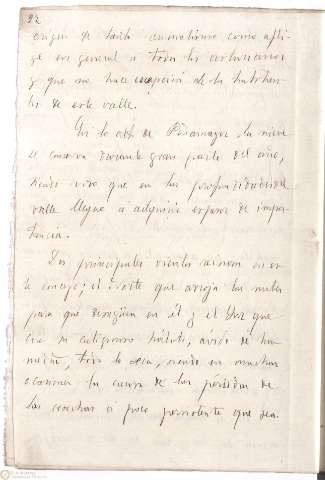 22
origen de tanto como afli-
ge en general a todos los asturianos
y que no hace excepción de los habitan-
tes de este valle.
En lo alto de Peñamayor, la nieve
se conserva durante gran parte del año,
siendo raro que en las profundidades del
valle llegue a adquirir espesor de impor-
tancia.
Dos principales vientos reinan en es-
te concejo; el Norte que arroja las nubes
para que descarguen en él y el Sur que
con su hálito, ávido de hu-
medad, todo lo seca, siendo en muchas
ocasiones la causa de las pérdidas de
las cosechas a poco persistente que sea.